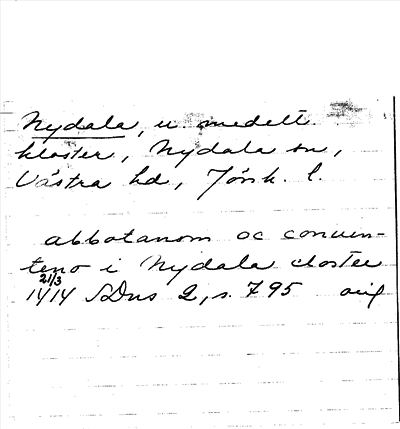 Nydala, u. medelt.
kloster, Nydala sn,
Västra hd, Jönk. l.
abbotanom oc conuen-
teno i Nydala closter
21/3
1414 SDns 2, s. 795 orig